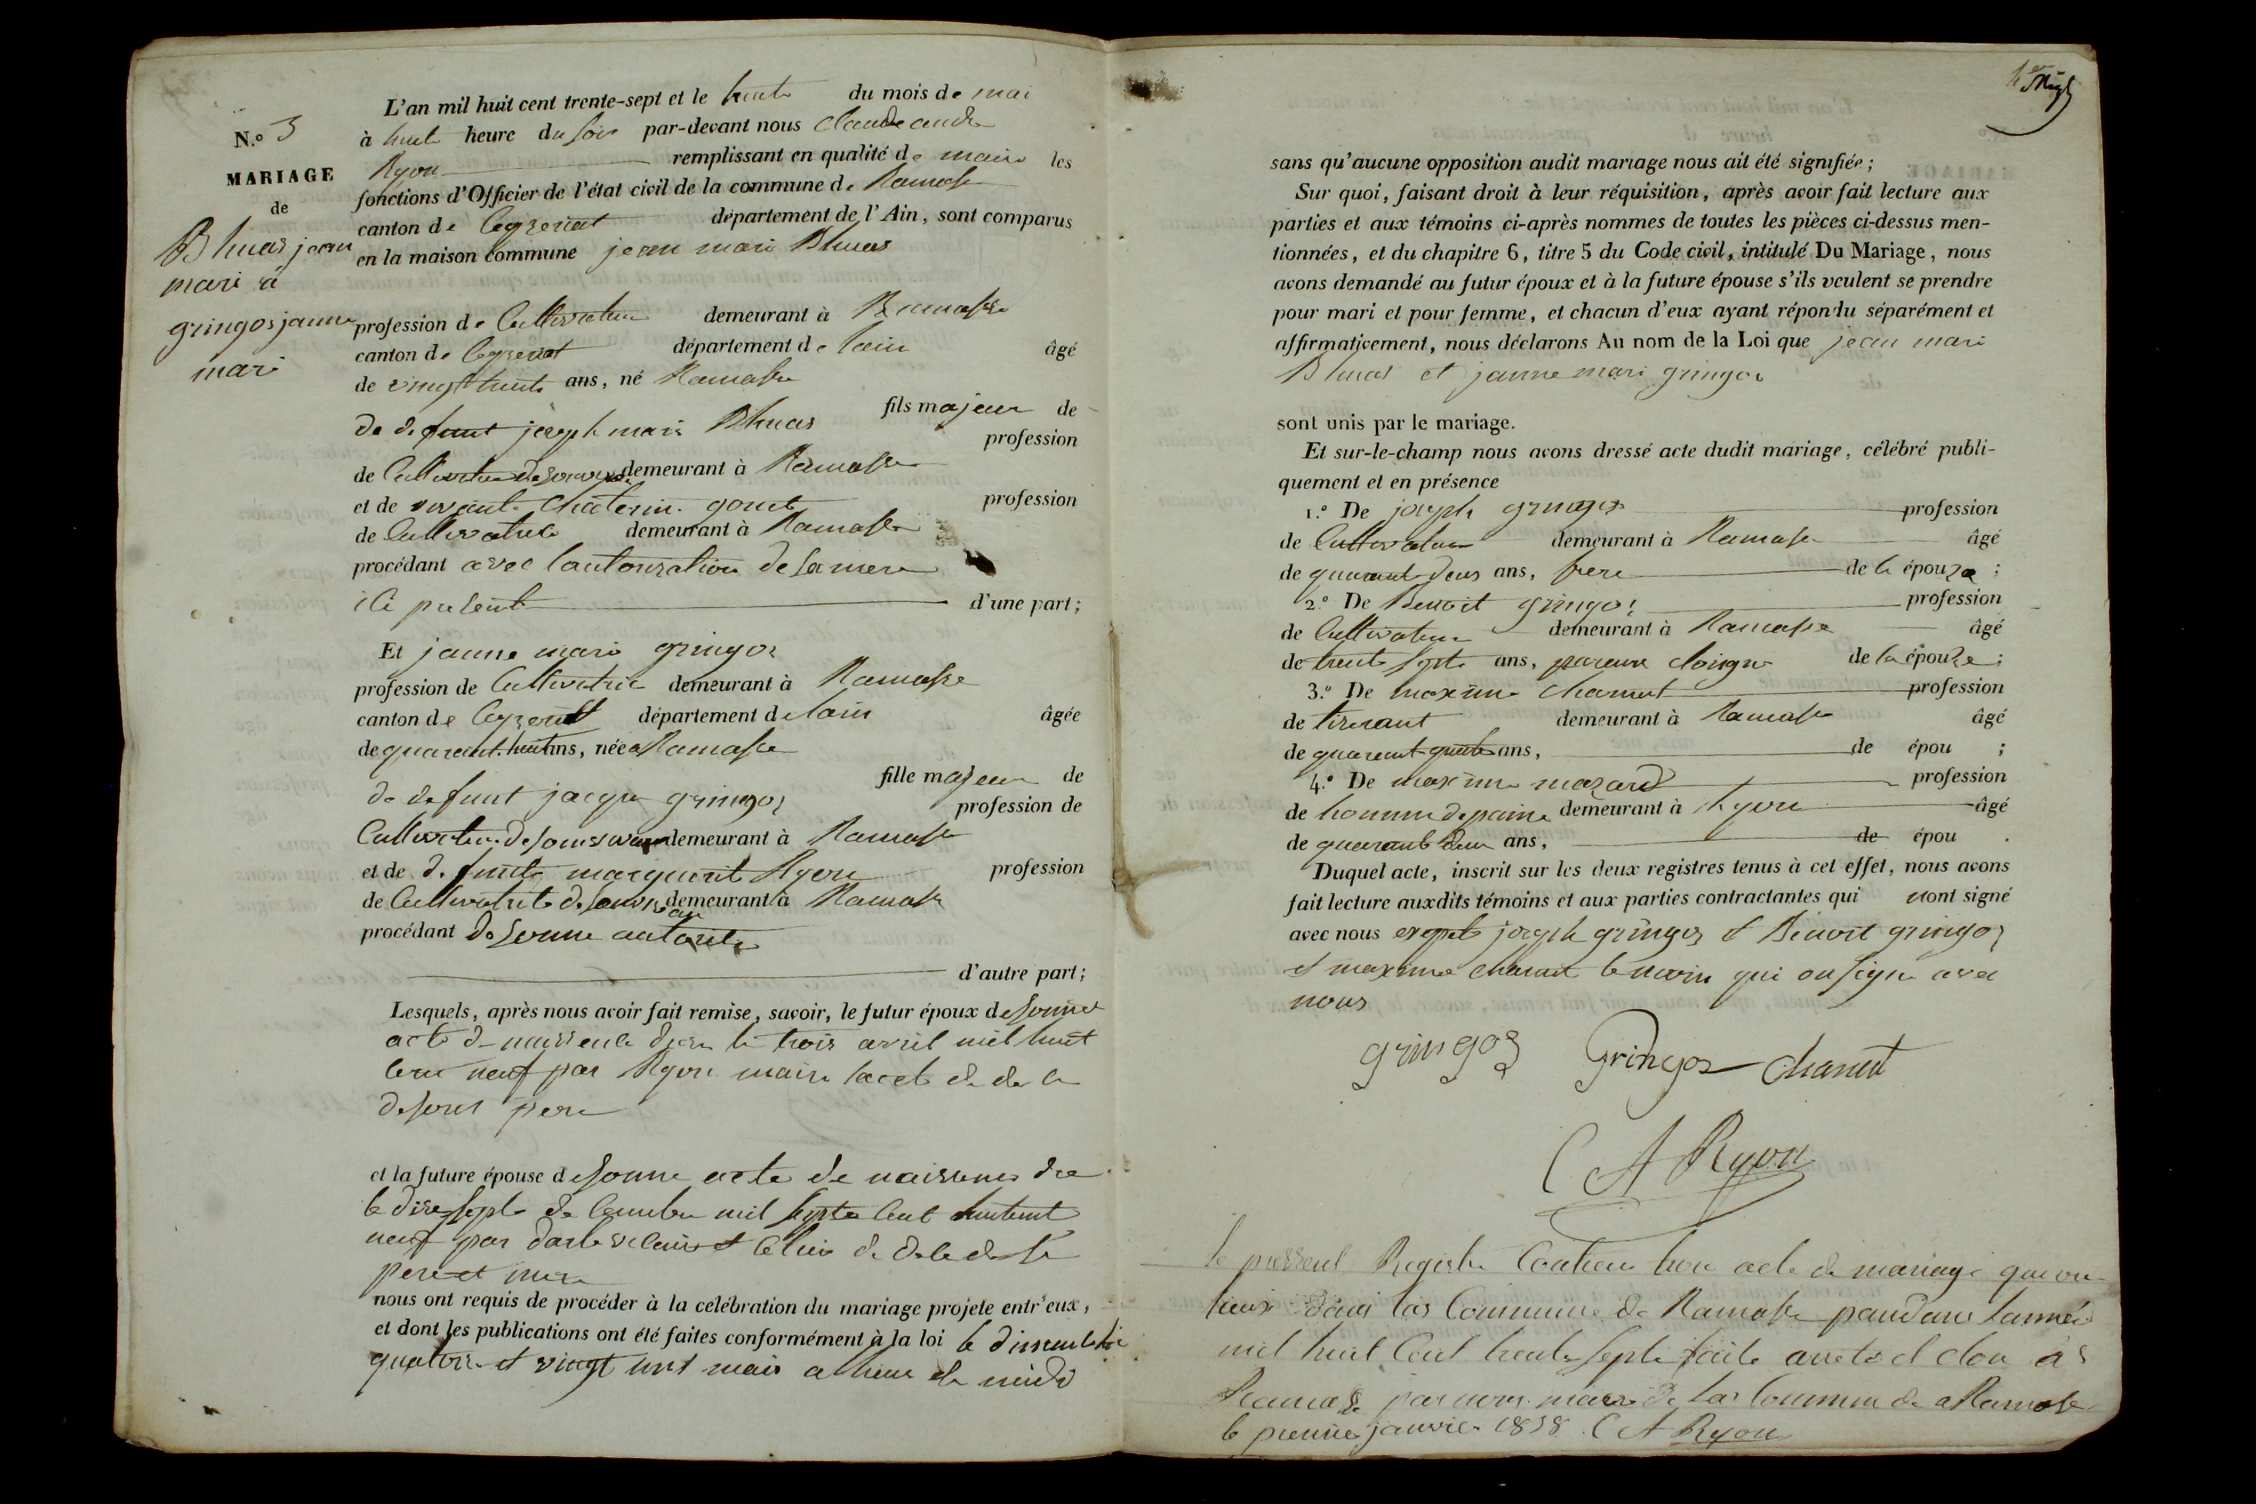 N.o 3
MARIAGE
de
Bluas jean
mari a
gringos janne
mari
L'an mil huit cent trente-sept et le trente du mois de mai
à huit heure du soir par-devant nous claude andre
Ryon remplissant en qualité de maire les
fonctions d'Officier de l'état civil de la commune de Ramasse
canton de Ceyzeriat département de l'Ain, sont comparus
en la maison commune jean mari Bluas
profession de Cultivateur demeurant à Ramasse
canton de Ceyzeriat département de lain âgé
de vingt huit ans, né Ramasse
fils majeur de
de defunt joseph mari Bluas profession
de Cultivateur de son vivan demeurant à Ramasse
et de vivante Chaterine gonet profession
de Cultivatrice demeurant à Ramasse
procédant avec lautorisation de sa mere
ici presente d'une part;
Et janne mari gringos
profession de Cultivatrice demeurant à Ramasse
canton de Ceyzeriat département de lain âgée
de quarant huit ans, née a Ramasse
fille majeur de
de defunt jacque gringos profession de
Cultivateur de son vivan demeurant à Ramasse
et de defunte marguerite Ryon profession
de Cultivatrice de son vivan demeurant à Ramasse
procédant de sonne autorite
d'autre part;
Lesquels, après nous avoir fait remise, savoir, le futur époux de sonne
acte de naissence le trois avril mil huit
cent neuf par Ryon maire lacte de de
de son pere
et la future épouse de sonne acte de naissance
le dixsept mil septe cent
neuf par
pere et mere
nous ont requis de procéder à la célébration du mariage projeté entr'eux,
et dont les publications ont été faites conformément à la loi le dimanche
quatorze et vingt un mai a heure de midi
sans qu'aucune opposition audit mariage nous ait été signifiée;
Sur quoi, faisant droit à leur réquisition, après avoir fait lecture aux
parties et aux témoins ci-après nommes de toutes les pièces ci-dessus men-
tionnées, et du chapitre 6, titre 5 du Code civil, intitulé Du Mariage, nous
avons demandé au futur époux et à la future épouse s'ils veulent se prendre
pour mari et pour femme, et chacun d'eux ayant répondu séparément et
affirmativement, nous déclarons Au nom de la Loi que jean mari
Bluas et janne mari gringos
sont unis par le mariage.
Et sur-le-champ nous avons dressé acte dudit mariage, célébré publi-
quement et en présence
1.o De joseph gringos profession
de Cultivateur demeurant à Ramasse âgé
de quarant deus ans, frere de le épouze;
2.o De Benoit gringos profession
de Cultivateur demeurant à Ramasse âgé
de trente septe ans, paraun eloigne de la épouze;
3.o De maxime chanut profession
de tiserant demeurant à Ramasse âgé
de quarant quatre ans, de épou ;
4.o De maxime mazard profession
de homme de paine demeurant à Ryon âgé
de quarant deux ans, de épou .
Duquel acte, inscrit sur les deux registres tenus à cet effet, nous avons
fait lecture auxdits témoins et aux parties contractantes qui nont signé
avec nous exepte joseph gringos et Benoit gringos
et maxime chanut temoin qui on signe avec
nous
gringos Gringos chanut
C A Ryon
le present Registre Contien trois acte de mariage que on
lieux dans las Commune de Ramasse pandant lannée
mil huit Cent trente septe faite arreté et clou a
Ramasse par nous maire de las Commune de Ramasse
le premier janvier 1838 C A Ryon